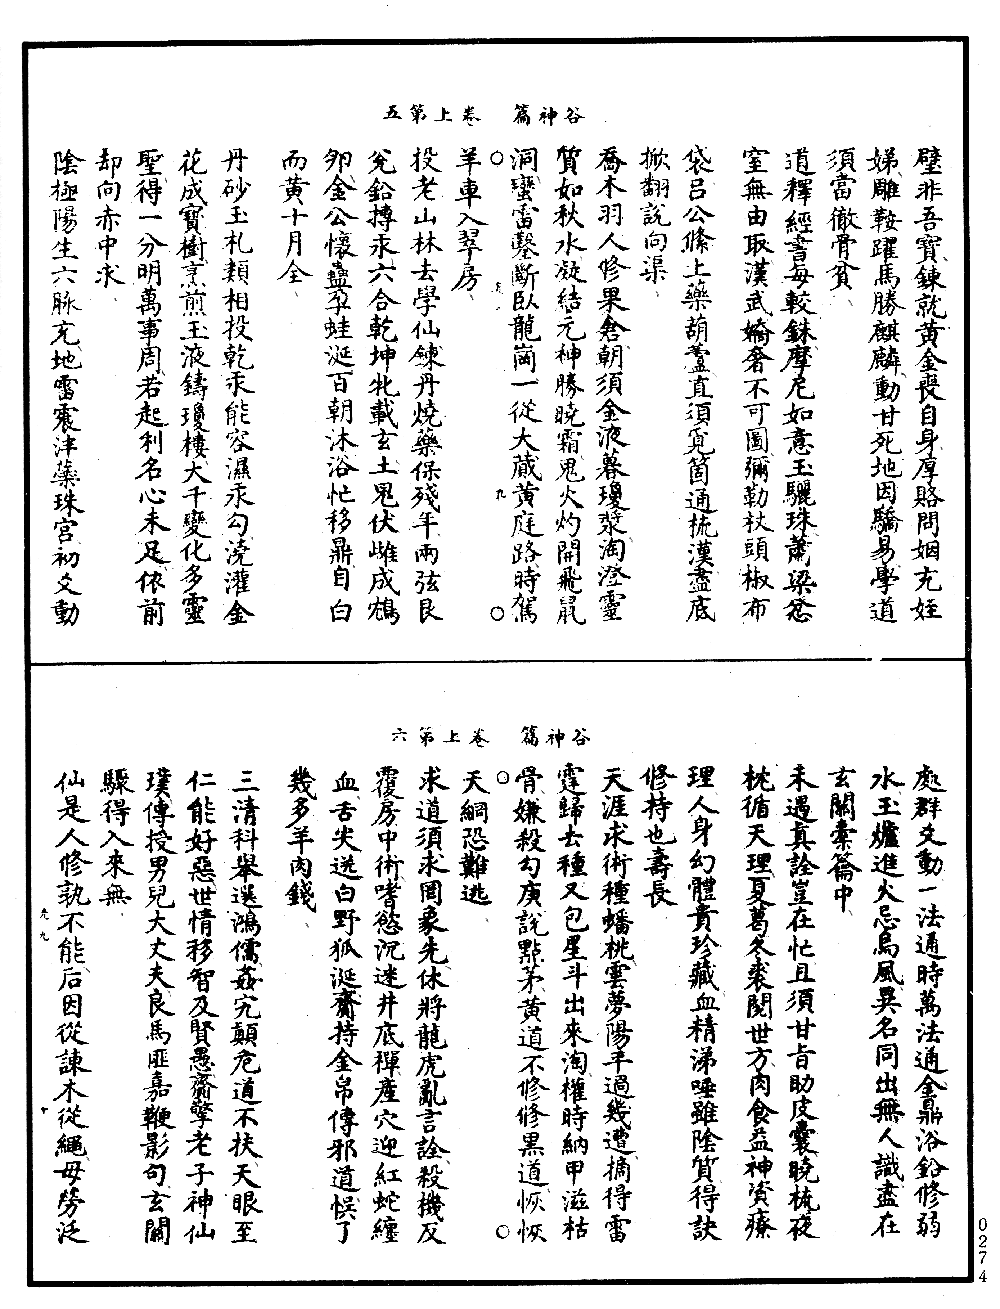 谷神篇　卷上第五
璧非吾寶鍊就黃金喪自身厚賂問姻充姪
娣雕鞍躍馬勝麒麟動甘死地因驕易學道
須當徹骨貧
道釋經書每較銖摩尼如意玉驪珠蕭梁忿
室無由取漢武嬌奢不可圖彌勒杖頭椒布
袋呂公絛上藥葫蘆直須覓箇通梳漢盡底
掀翻說向渠
喬木羽人修果會朝須金液暮瓊漿淘澄靈
質如秋水凝結元神勝曉霜鬼火灼開飛鼠
洞蠻雷鑿斷臥龍崗一從大藏黃庭路時駕
羊車入翠房
投老山林去學仙鍊丹燒藥保殘年兩弦艮
兌鉛摶汞六合乾坤牝載玄土鬼伏雌成鴆
卵金公懷蠱孕蛙涎百朝沐浴忙移鼎自白
而黃十月全
丹砂玉札顆相投乾汞能容濕汞勾澆灌金
花成寶樹烹煎玉液鑄瓊樓大千變化多靈
聖得一分明萬事周若起利名心未足依前
却向赤中求
陰極陽生六脉充地雷震津蘂珠宮初爻動
谷神篇　卷上第六
處群爻動一法通時萬法通金鼎浴鉛修弱
水玉爐進火忌烏風異名同出無人識盡在
玄關橐籥中
未遇真詮豈在忙且須甘旨助皮囊曉梳夜
枕循天理夏葛冬裘閱世方肉食益神資療
理人身幻體貴珍藏血精涕唾雖陰質得訣
修持也壽長
天涯求術種蟠桃雲夢陽平過幾遭摘得雷
霆歸去種又包星斗出來淘權時納甲滋枯
骨嫌殺勾庚說點茅黃道不修修黑道恢恢
天網恐難逃
求道須求罔象先休將龍虎亂言詮殺機反
覆房中術嗜慾沉迷井底禪產穴迎紅蛇纏
血舌尖送白野狐涎齎持金帛傳邪道悞了
幾多羊肉錢
三清科舉選鴻儒姦宄顛危道不扶天眼至
仁能好惡世情移智及賢愚齋擎老子神仙
璞傳授男兒大丈夫良馬匪嘉鞭影句玄關
驟得入來無
仙是人修孰不能后因從諫木從繩毋勞泛
0274